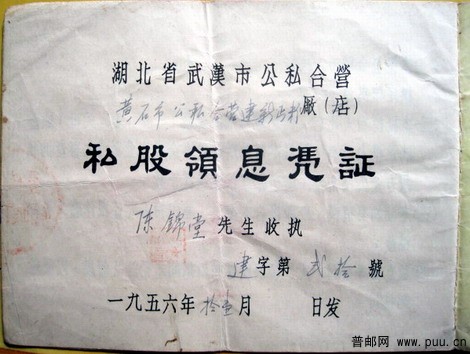 湖北省武漢市公私合营
黄石市公私合营建新 厰(店)
私股領息凭証
陈錦堂先生收执
建字第 弍拾 號
一九五六年拾壹月 日发
普邮网 www.puu.cn